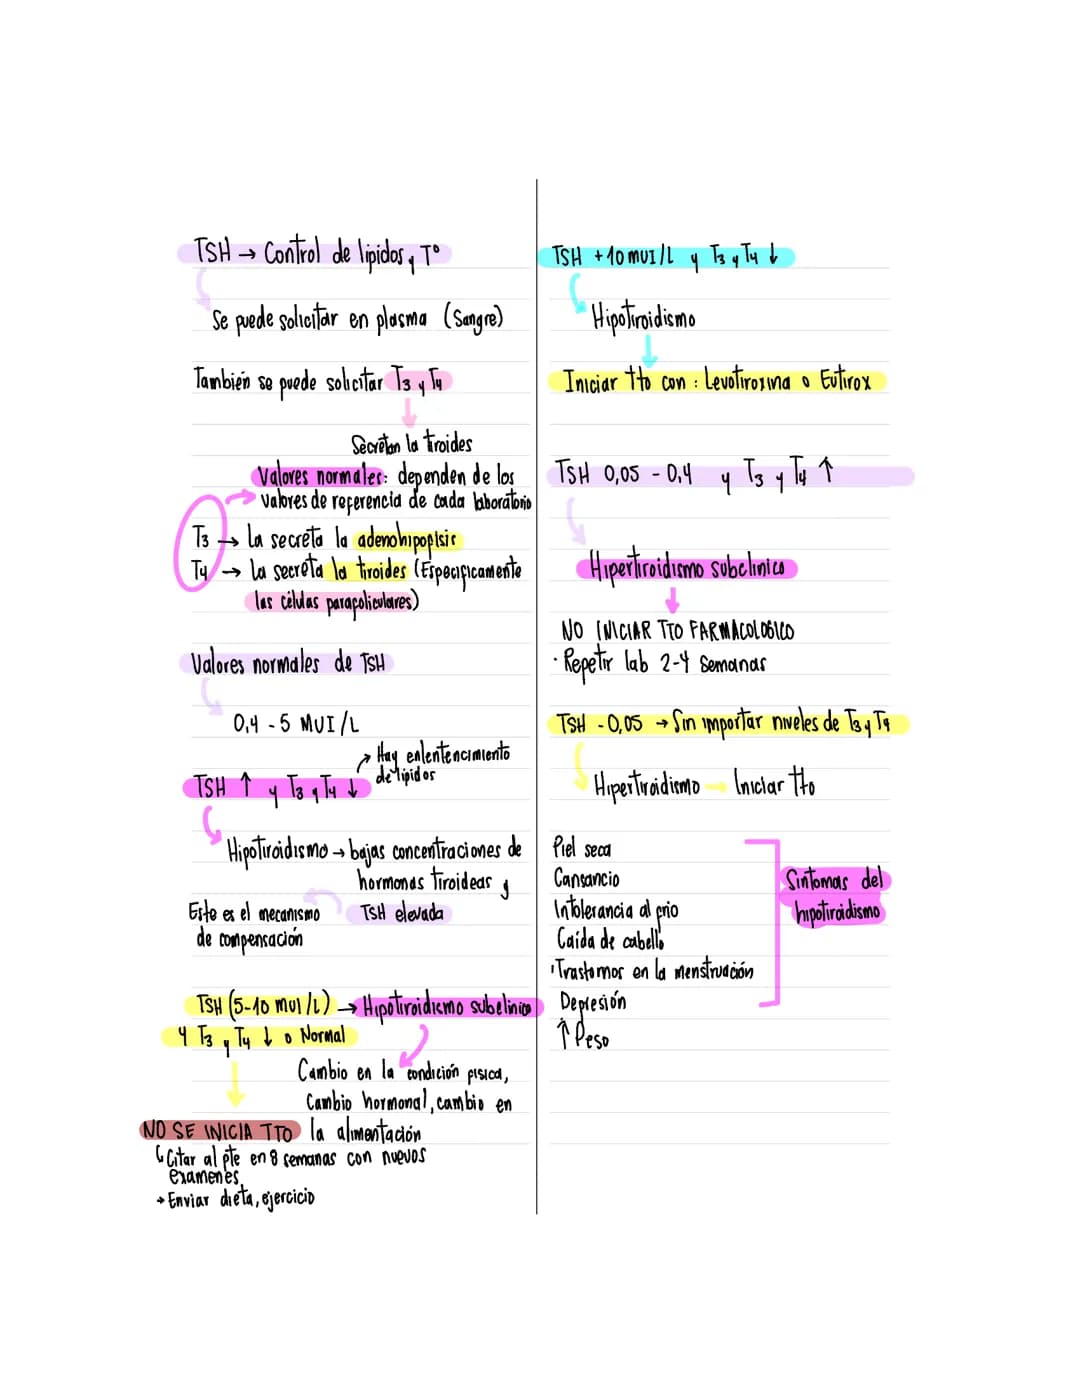 TSH → Control de lipidos y T°
Se puede solicitar en plasma (Sangre)
También se puede solicitar T3 y T4
Secretan la tiroides
Valores normales: dependen de los
valores de referencia de cada laboratorio
T3 → La secreta la adenohipofisis
T4 → La secreta la tiroides (Especificamente
las células parafoliculares)
Valores normales de TSH
0,4 - 5 MUI/L
→ Hay enlentencimiento
de lipidos
TSH ↑ y T3 y T4 ↓
Hipotiroidismo → bajas concentraciones de
hormonas tiroideas y
TSH elevada
Este es el mecanismo
de compensación
TSH (5-10 mUI/L) → Hipotiroidismo subclinico
y T3 y T4 ↓ o Normal
Cambio en la condición fisica,
Cambio hormonal, cambio en
la alimentación
NO SE INICIA TTO
↳ Citar al pte en 8 semanas con nuevos
examenes
→ Enviar dieta, ejercicio
TSH +10 mUI/L y T3 y T4 ↓
Hipotiroidismo
Iniciar tto con : Levotiroxina o Eutirox
TSH 0,05 - 0,4 y T3 y T4 ↑
Hipertiroidismo subclinico
NO INICIAR TTO FARMACOLOGICO
· Repetir lab 2-4 semanas
TSH - 0,05 → Sin importar niveles de T3 y T4
Hipertiroidismo → Iniciar tto
Piel seca
Cansancio
Intolerancia al frio
Caída de cabello
Trastornos en la menstruación
Depresión
↑ Peso
Sintomas del
hipotiroidismo